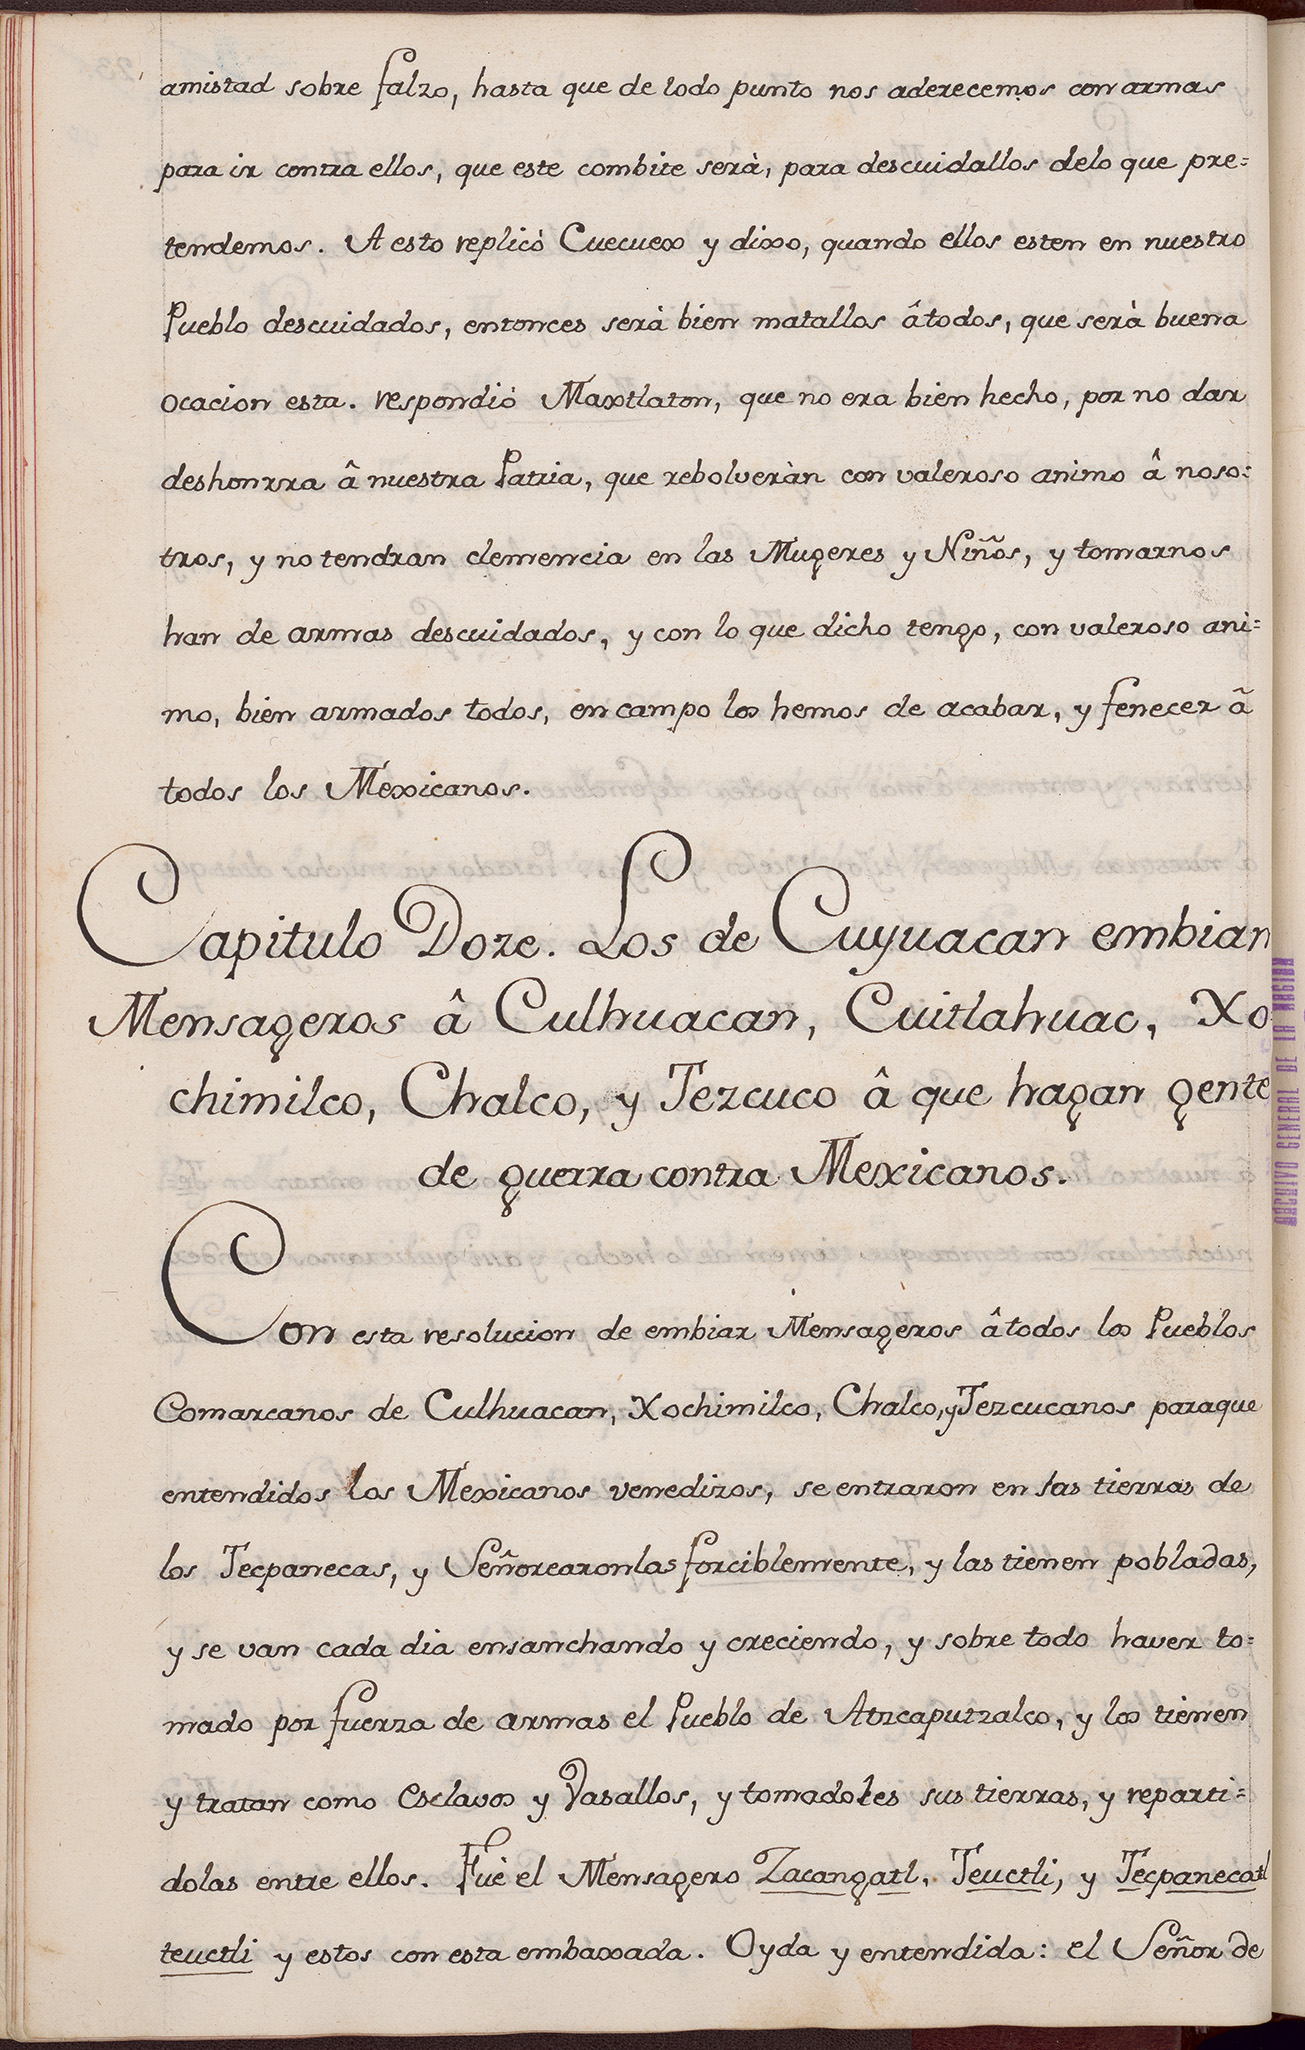 amistad sobre falzo, hasta que de todo punto nos aderecemos con armas
para ir contra ellos, que este combite serà, para descuidallos delo que pre=
tendemos. A esto replicò Cuecuex y dixo, quando ellos esten en nuestro
Pueblo descuidados, entonces serà bien matallos âtodos, que serà buena
ocacion esta. respondiò Maxtlaton, que no era bien hecho, por no dar
deshonrra â nuestra Patria, que rebolveràn con valeroso animo â noso=
tros, y no tendran clemencia en las Mugeres y Niños, y tomarnos
han de armas descuidados, y con lo que dicho tengo, con valeroso ani=
mo, bien armados todos, en campo los hemos de acabar, y fenecer ã
todos los Mexicanos.
Capitulo Doze. Los de Cuyuacan embian
Mensageros â Culhuacan, Cuitlahuac, Xo
chimilco, Chalco, y Tezcuco â que hagan gente
de guerra contra Mexicanos.
Con esta resolucion de embiar Mensageros âtodos los Pueblos
Comarcanos de Culhuacan, Xochimilco, Chalco, y Tezcucanos paraque
entendidos los Mexicanos venedizos, se entraron en las tierras de
los Tecpanecas, y Señorearonlas forciblemente, y las tienen pobladas,
y se van cada dia ensanchando y creciendo, y sobre todo haver to=
mado por fuerza de armas el Pueblo de Atzcaputzalco, y los tienen
y tratan como esclavos y Vasallos, y tomadoles sus tierras, y reparti=
dolas entre ellos. Fuè el Mensagero Zacangatl, Teuctli, y Tecpanecatl
teuctli y estos con esta embaxada. Oyda y entendida: el Señor de
ARCHIVO GENERAL DE LA NACION